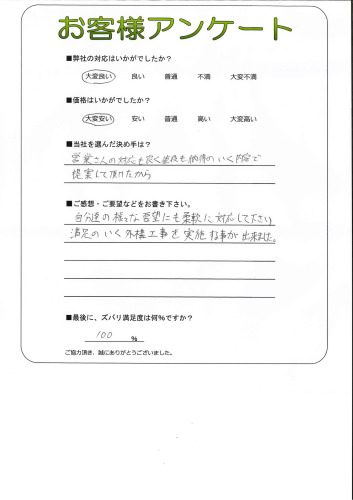 お客様アンケート
■弊社の対応はいかがでしたか?
大変良い 良い 普通 不満 大変不満
■価格はいかがでしたか?
大変安い 安い 普通 高い 大変高い
■当社を選んだ決め手は?
営業さんの対応も良く価格も納得のいく内容で
提案して頂けたから
■ご感想・ご要望などをお書き下さい。
自分達の様々な要望にも柔軟に対応して下さい
満足のいく外構工事を実施する事が出来ました。
■最後に、ズバリ満足度は何%ですか?
100 %
ご協力頂き、誠にありがとうございました。